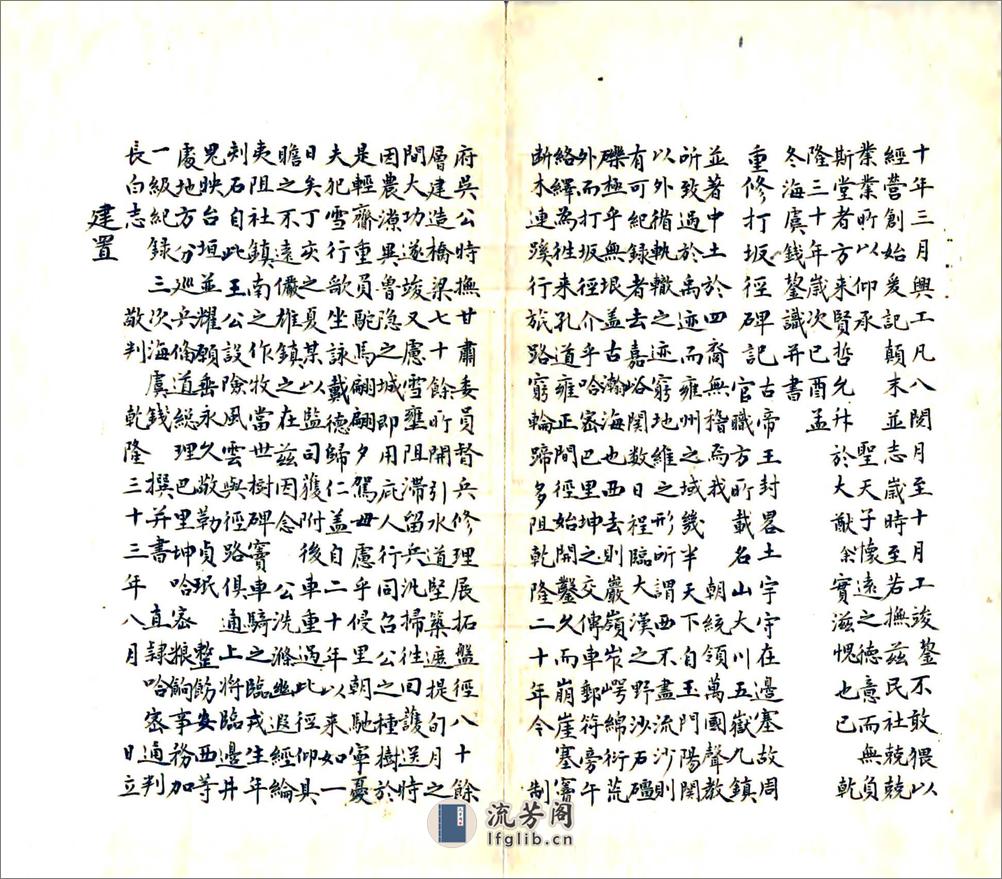 十年三月興工凡八閱月至十月工竣鋆不敢猥以
經營創始爰記顛末並志歲時至若撫兹民社兢兢
業業所以仰承 聖天子懷遠之德意而無負
斯堂者方來賢哲允升於大猷余實滋愧也已 乾
隆三十年歲次己酉孟
冬海虞錢鋆識并書
重修打坂徑碑記 古帝王封畧土宇守在邊塞故周
官職方所載名山大川五嶽九鎮
並著中土於四裔無稽焉我 朝統領萬國聲教
所致過於禹迹而雍州之域幾半天下自玉門陽關
以外循軌轍之迹窮地維之形所謂西不盡流沙則
有可紀録者去嘉峪関數日程臨大漢之野沙石疆
礫極乎無垠盖古瀚海也西去則巖嶺岝崿綿衍㠩
外而打坂徑介乎哈密巴里坤之交傳車郵符旁午
絡繹為徃来孔道雍正間徑始開鑿久而崩崖塞竇
断木連蹊行旅路窮輪蹄多阻乾隆二十年令 制
府吳公時撫甘肅委員督兵修理展拓盤徑八十餘
層建造橋梁七十餘所開引水道堅築遮提旬月之
間大功遂竣又慮雪壅阻滞留兵汛掃徃回護送時
因農源異魯隐之城即用庇人行同召公之種樹於
是輕齋重員駝馬翩翩夕駕毋慮乎侵里朝馳寧憂
夫犯雪行歌坐詠戴德歸仁盖自二十年以來如一
日矣丁亥之夏某以監司獲附後車重過此徑仰其
瞻之不遠儼雄鎮之在兹因念 公洗滌幽遐經綸
夷阻社鎮南之作牧當世樹碑竇車騎之臨戎生年
刺石自此王公設險風雲與徑路俱通上將臨邊井
鬼映台垣並耀願垂永久敬勒貞珉 整飭安西等
處地方分巡兵俻道總理巴里坤哈密粮餉事務加
一級紀録三次海虞錢 撰并書 直隷哈密通判
長白 三敬判 乾隆三十三年八月 日立
志
建置
流芳阁
lfglib.cn